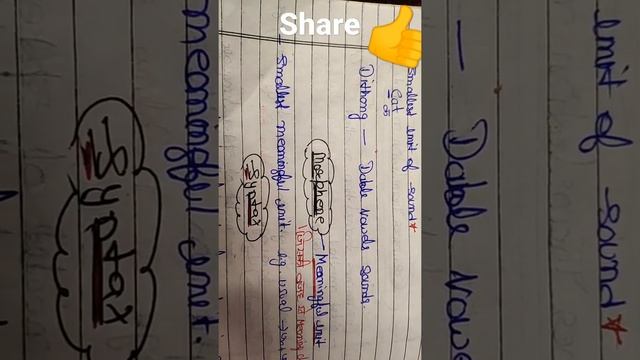 Share
Smallest unit of sound*
Cat
Dipthong — Double vowels sounds.
Morphene — Meaningful unit
Smallest meaningful unit. eg. usual
- Syntax
unit of sound*
— Double vowe
meaningful unit.
- Syntax